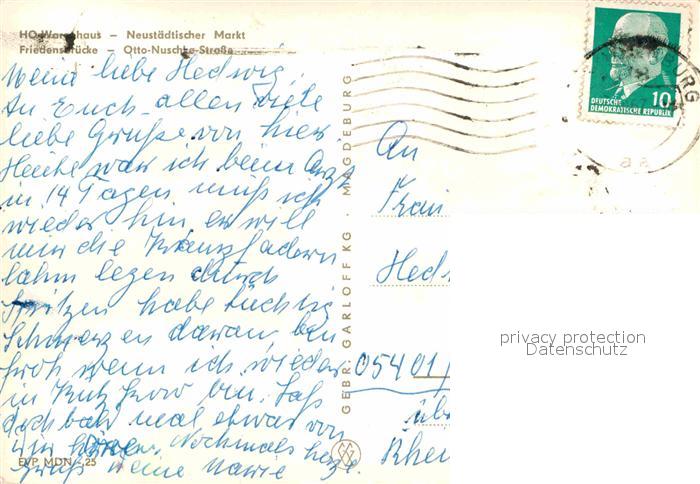 HO-Warenhaus – Neustädtischer Markt
Friedensbrücke – Otto-Nuschke-Straße
Meine liebe Hedwig,
An Euch allen viele
liebe Grüße von hier
Heute war ich beim Arzt
in 14 Tagen muß ich
wieder hin, er will
mir die Krampfadern
lahm legen durch
Spritzen habe tüchtig
Schmerzen daran, bin
froh wenn ich wieder
in bin. Laß
doch bald mal etwas von
Dir hören. Nochmals herzl.
Gruß Deine Marie
EVP MDN -.25
GEBR. GARLOFF KG · MAGDEBURG
DEUTSCHE
DEMOKRATISCHE REPUBLIK
10
BURG
An
Frau
Hed
05401
üb
Rhei
privacy protection
Datenschutz